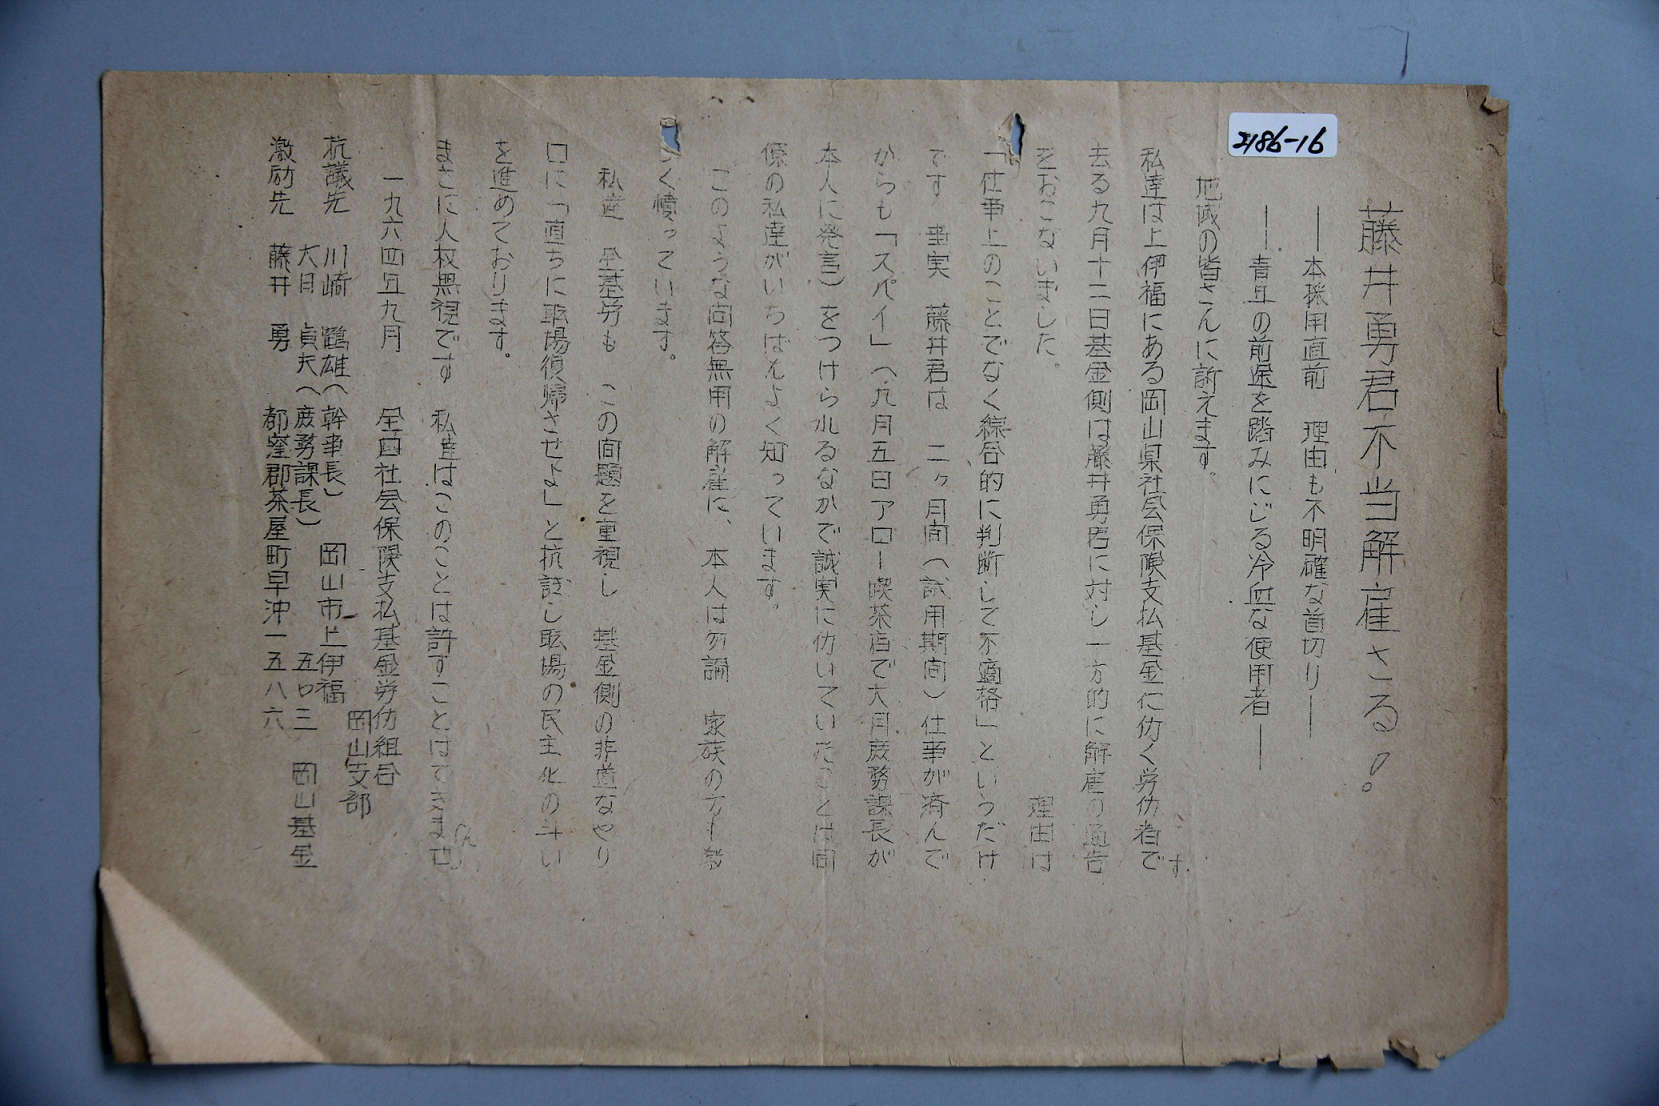 2186-16
藤井勇君不当解雇さる!!
――本採用直前 理由も不明確な首切り――
――青年の前途を踏みにじる冷血な使用者――
地域の皆さんに訴えます。
私達は上伊福にある岡山県社会保険支払基金に仂く労仂者です
去る九月十二日基金側は藤井勇君に対し一方的に解雇の通告
をおこないました。 理由は
「仕事上のことでなく綜合的に判断して不適格」というだけ
です 事実 藤井君は 二ヶ月間(試用期間)仕事が済んで
からも「スパイ」(九月五日アロー喫茶店で大月庶務課長が
本人に発言)をつけられるなかで誠実に仂いていたことは同
僚の私達がいちばんよく知っています。
このような問答無用の解雇に、本人は勿論 家族の方も
く憤っています。
私達 全基労も この問題を重視し 基金側の非道なやり
口に「直ちに職場復帰させよ」と抗議し職場の民主化の斗い
を進めております。
まさに人权無視です 私達はこのことは許すことはできません
一九六四年九月 全国社会保険支払基金労仂組合
岡山支部
抗議先 川崎 雄(幹事長) 岡山市上伊福
大月 貞夫(庶務課長) 五〇三 岡山基金
激励先 藤井 勇 都窪郡茶屋町早沖一五八六